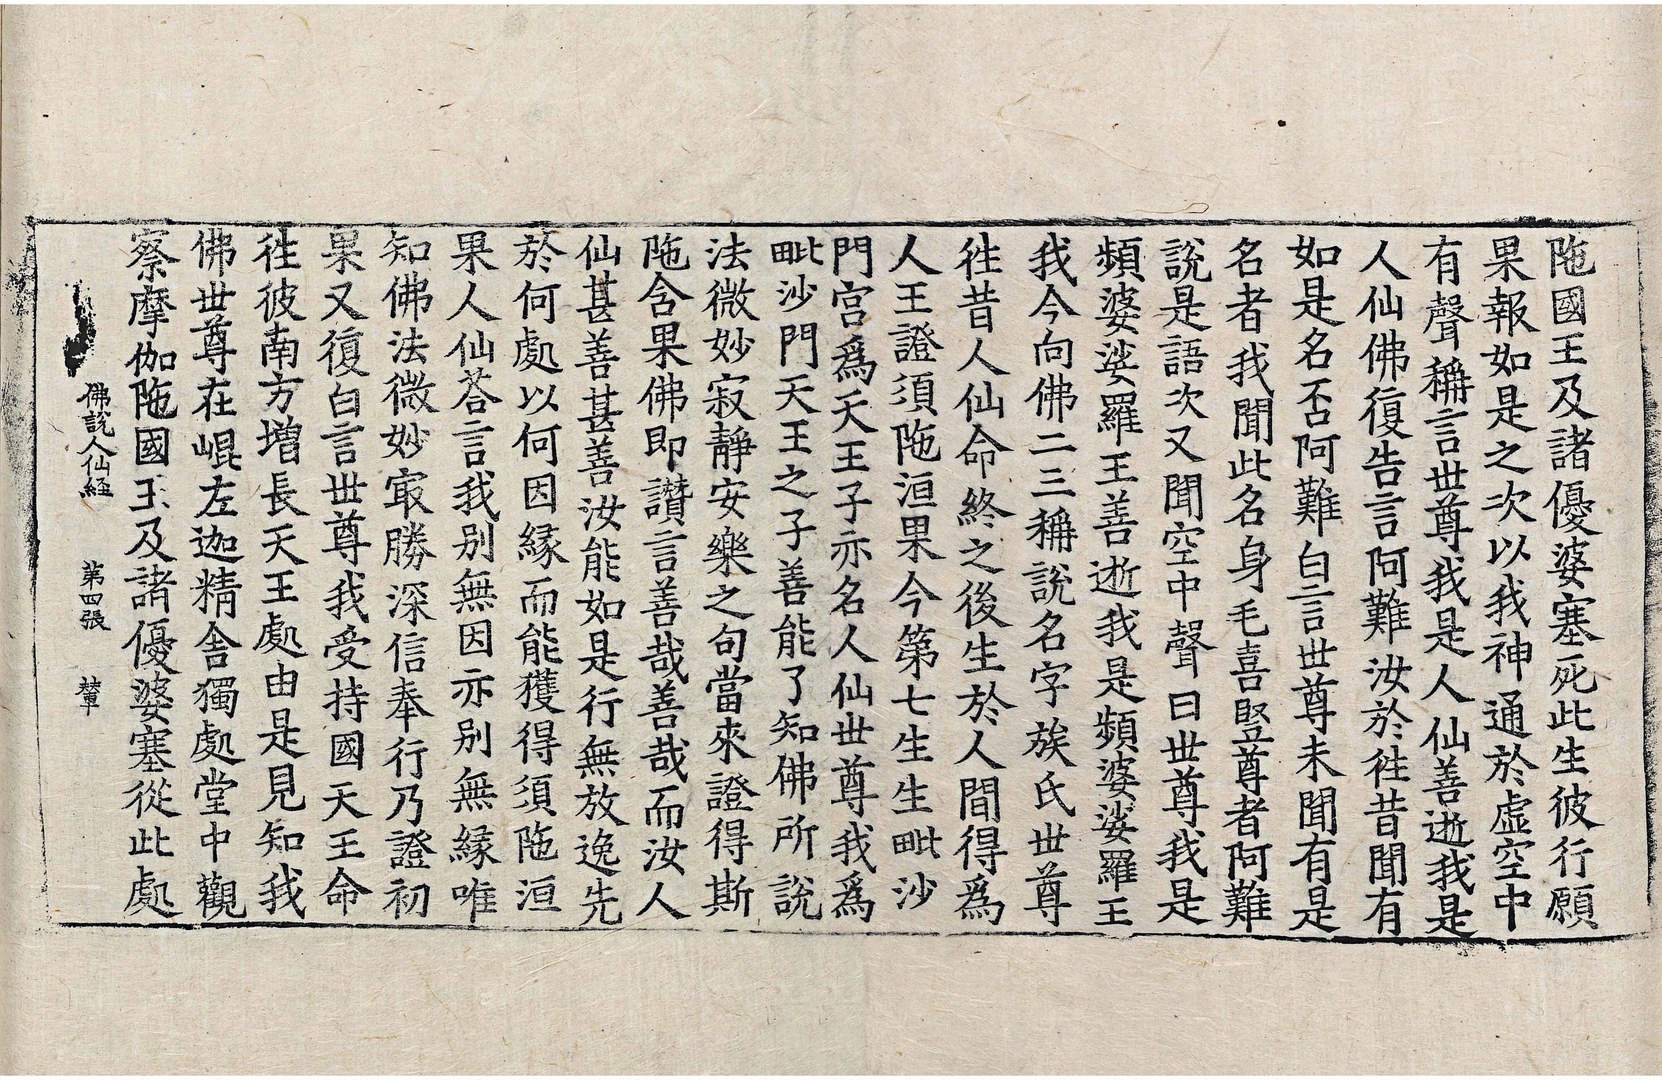 陁國王及諸優婆塞死此生彼行願
果報如是之次以我神通於虛空中
有聲稱言世尊我是人仙善逝我是
人仙佛復告言阿難汝於徃昔聞有
如是名否阿難白言世尊未聞有是
名者我聞此名身毛喜豎尊者阿難
說是語次又聞空中聲曰世尊我是
頻婆娑羅王善逝我是頻婆娑羅王
我今向佛二三稱說名字族氏世尊
徃昔人仙命終之後生於人間得爲
人王證須陁洹果今第七生生毗沙
門宮爲天王子亦名人仙世尊我爲
毗沙門天王之子善能了知佛所說
法微妙寂靜安樂之句當來證得斯
陁含果佛即讚言善哉善哉而汝人
仙甚善甚善汝能如是行無放逸先
於何處以何因緣而能獲得須陁洹
果人仙荅言我別無因亦別無緣唯
知佛法微妙㝡勝深信奉行乃證初
果又復白言世尊我受持國天王命
徃彼南方增長天王處由是見知我
佛世尊在崐左迦精舍獨處堂中觀
察摩伽陁國王及諸優婆塞從此處
佛說人仙経 第四張 輦